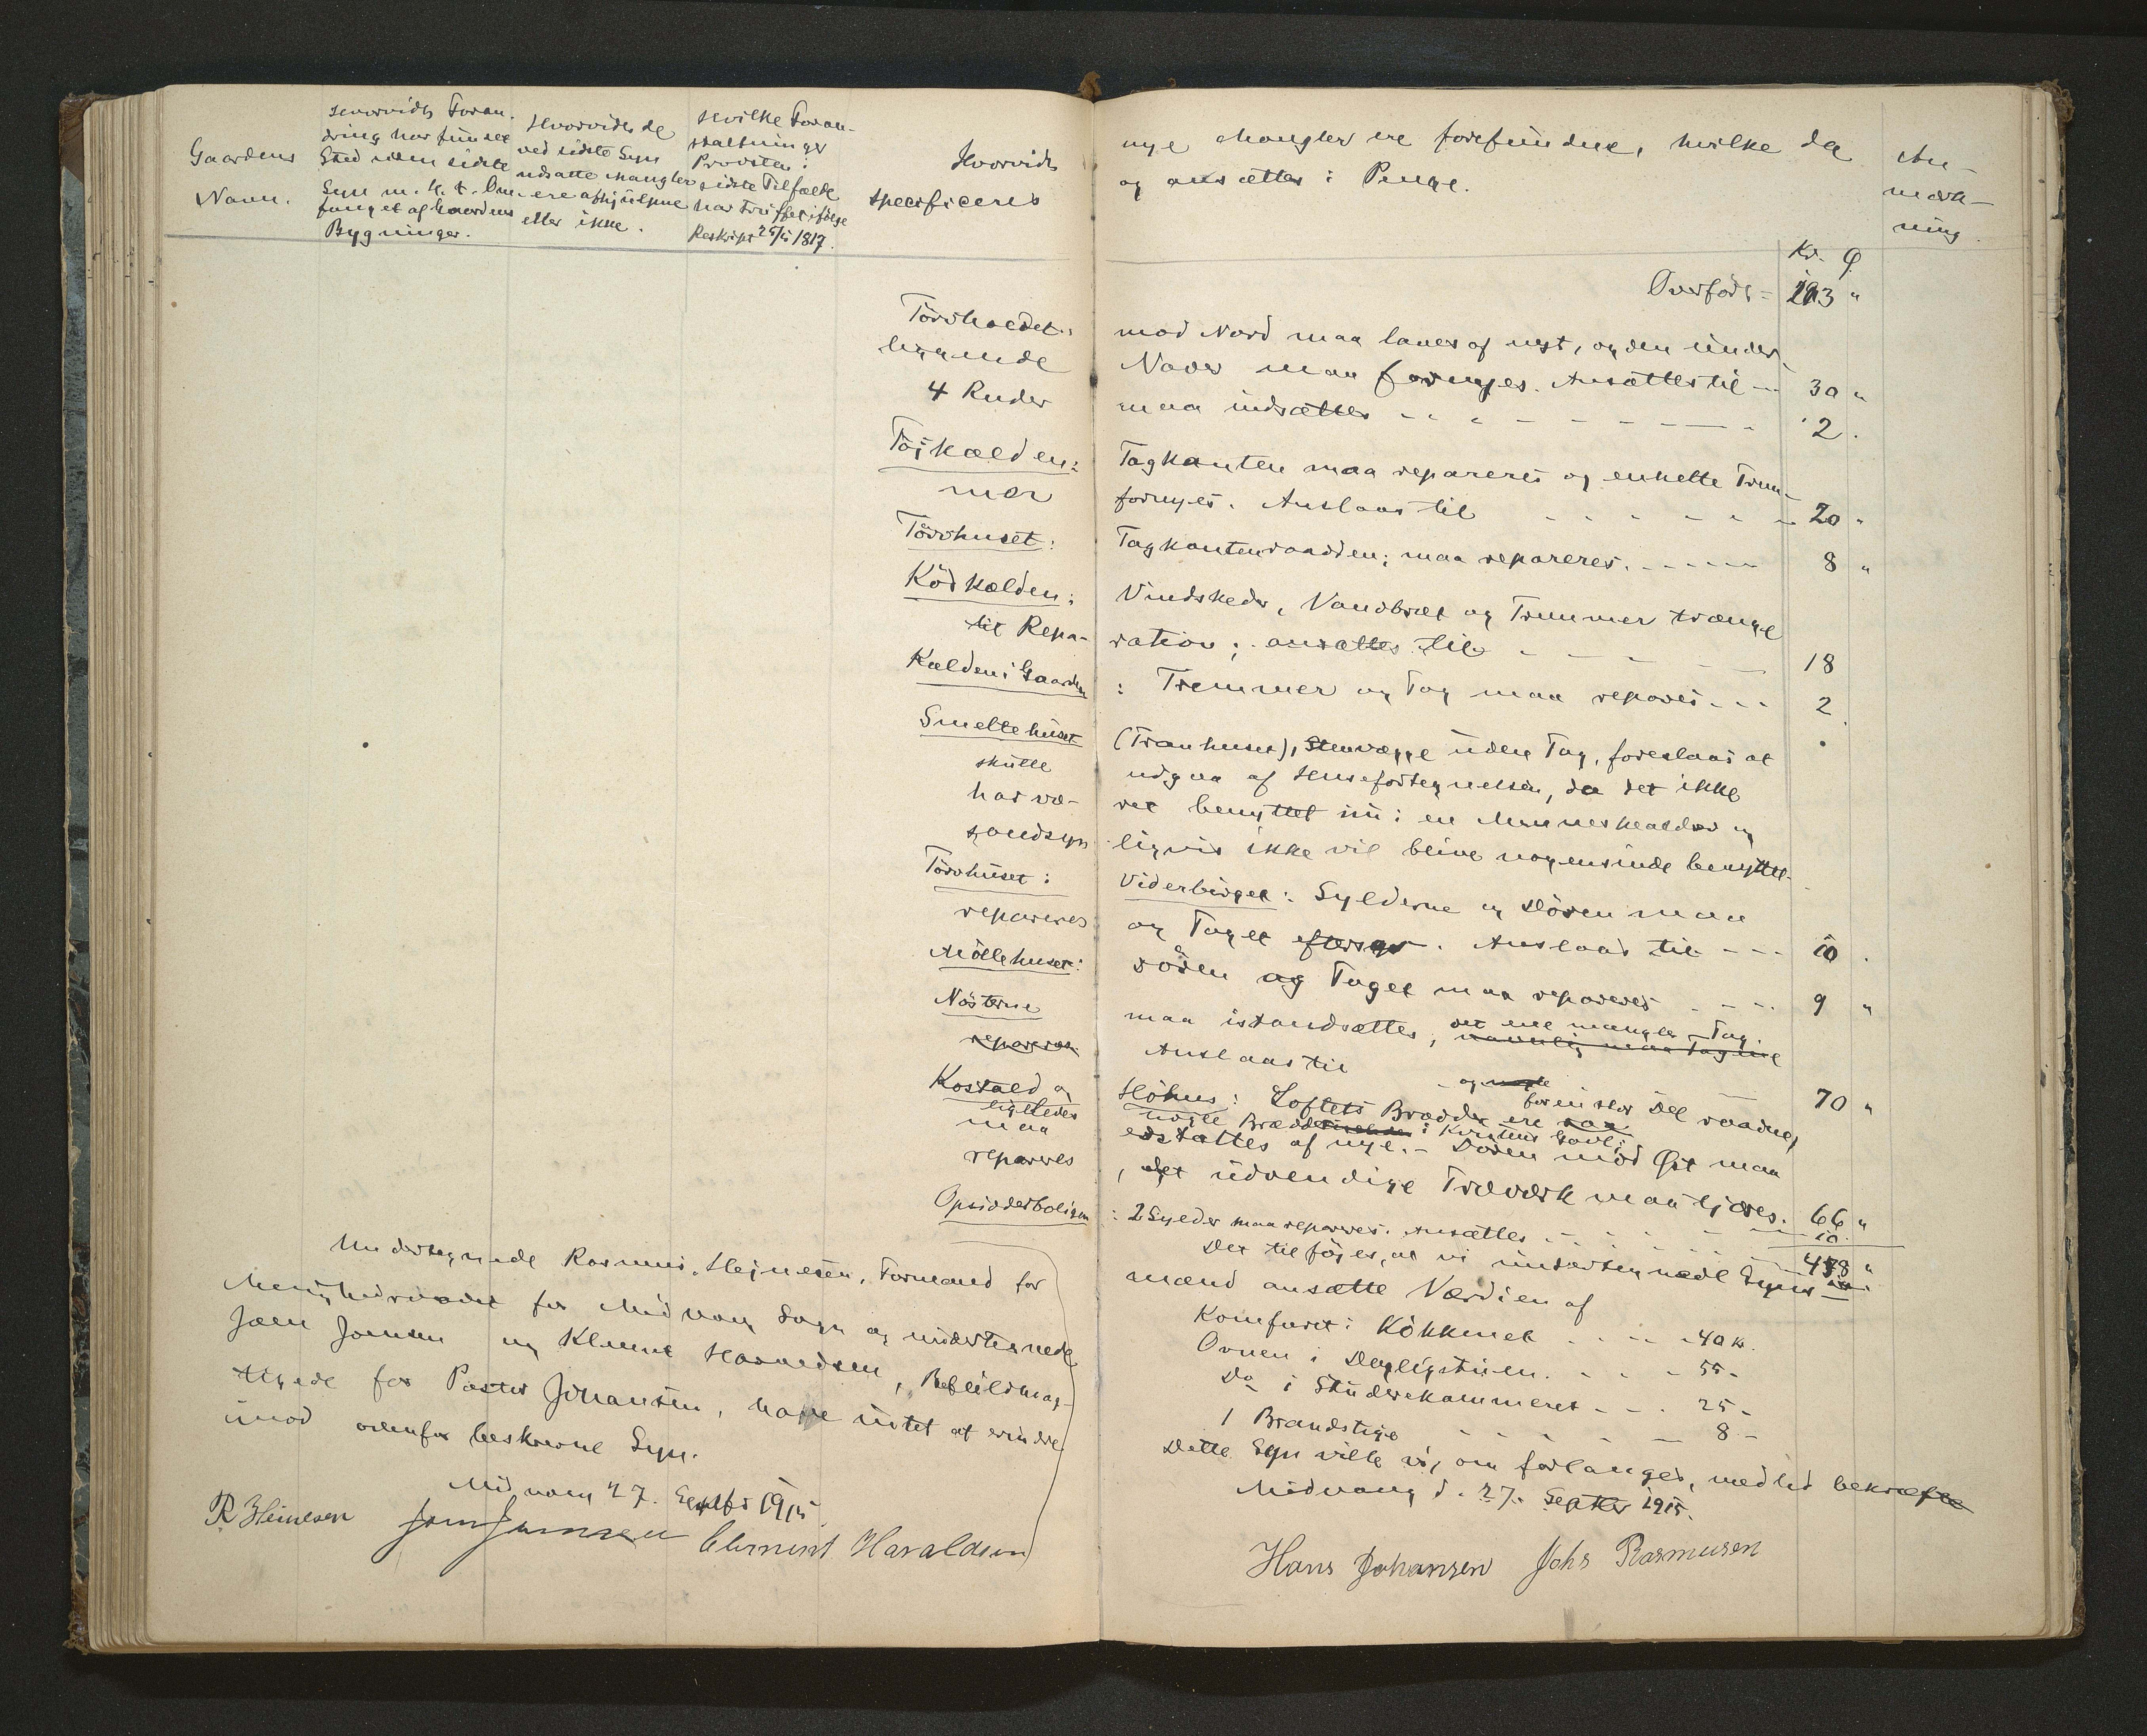 Gaardens
Navn.
Hvorvidt Foran-
dring har fundet
Sted siden sidste
Syn m. H. t. Om-
fanget af Gaardens
Bygninger.
Hvorvidt de
ved sidste Syn
udsatte Mangler
ere afhjulpne
eller ikke.
Hvilke Foran-
staltninger
Provsten i
sidste Tilfælde
har truffet ifølge
Reskript 25/5 1817.
Hvorvidt nye Mangler ere forefundne, hvilke da
specificeres og ansættes i Penge.
An-
mærk-
ning.
Kr. Ø.
Overført = 193 "
Törvhuset: mod Nord maa laves af nyt, og den under-
liggende Naver maa fornyes. Ansættes til - 30 "
4 Ruder maa indsættes - - - - 2 .
Töjkælderen: Tagkanten maa repareres og enkelte Træm-
mer fornyes. Anslaas til - - - - 20 "
Törvhuset: Tagkanten raadden; maa repareres. - - - 8 "
Ködkælderen: Vindskeder, Vandbræt og Trummer trænge
til Repa- ration; ansættes til - - - 18
Kælderen i Gaarden : Tremmer og Tag maa repares - - - 2
Smeltehuset (Tranhuset), Stenvægge uden Tag, foreslaas at
skulle udgaa af Husefortegnelsen, da det ikke
har væ- ret benyttet nu i en Menneskealder og
sandsyn- ligvis ikke vil blive nogensinde benyttet.
Törvhuset: Viderbirget: Sylderne og Dören maa
repareres og Taget efterses. Anslaas til - - - 10 .
Möllehuset: Dören og Taget maa repareres - - - 9 "
Nösterne maa istandsættes, det ene mangler Tag.
repareres navnlig maa Tagene
Anslaas til 70 "
Kostald og Höhus: Loftets Brædder ere for en stor Del raadne,
ligeledes nogle Brædder i Kvistens Gavl;
maa erstattes af nye. - Dören mod Øst maa
repareres, det udvendige Træværk maa tjæres. 66 "
Opsidderboligen : 2 Sylder maa repareres. Ansættes - - - 10
478 "
Det tilföjes, at vi undertegnede Syns-
mænd ansætte Værdien af
Komfuret i Kökkenet - - - 40 kr.
Ovnen i Dagligstuen - - - 55 -
Do i Studerekammeret - - . 25 -
1 Brandstige - - - - 8 -
Dette Syn ville vi, om forlanges, med Ed bekræfte
Midvaag d. 27. Septbr 1915.
Hans Johansen Johs Rasmusen
Undertegnede Rasmus Hejnesen, Formand for
Menighedsraadet for Midvaag Sogn og undertegnede
Joen Joensen og Klement Haraldsen, Befuldmæg-
tigede for Pastor Johansen, have intet at erindre
imod ovenfor beskrevne Syn.
Midvaag 27. Septbr 1915
R Heinesen Joen Joensen Clement Haraldsen